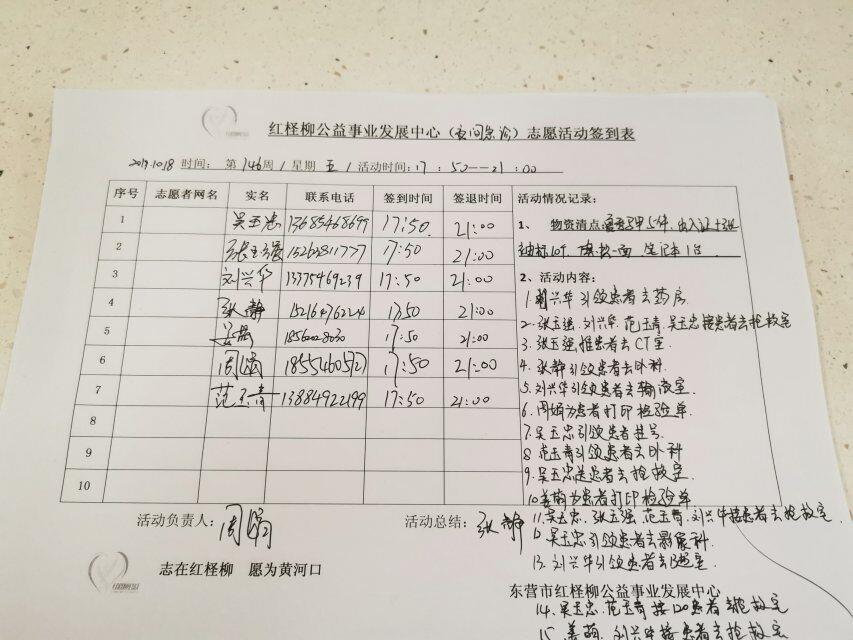 红柽柳公益事业发展中心（夜间急诊）志愿活动签到表
2019.10.18 时间： 第 146周 / 星期 五 / 活动时间：17：50——21：00
序号 志愿者网名 实名 联系电话 签到时间 签退时间 活动情况记录：
1 吴玉忠 13685468699 17:50 21:00
2 张玉强 17:50 21:00
3 刘兴华 13375469239 17:50 21:00
4 张静 15216476224 17:50 21:00
5 姜萌 17:50 21:00
6 周娟 18554605727 17:50 21:00
7 范玉青 13884922199 17:50 21:00
8
9
10
1、 物资清点 马甲5件，出入证
袖标10个，旗帜一面，笔记本1个。
2、活动内容：
1.刘兴华引领患者去药房
2.张玉强、刘兴华、范玉青、吴玉忠接患者去抢救室
3.张玉强推患者去CT室.
4.张静引领患者去外科
5.刘兴华引领患者去输液室.
6.周娟为患者打印检验单.
7.吴玉忠引领患者挂号
8 范玉青引领患者去外科
9.吴玉忠送患者去抢救室.
10姜萌为患者打印检验单
11.吴玉忠、张玉强、范玉青、刘兴华接患者去抢救室.
12.吴玉忠引领患者去影像科.
13.刘兴华引领患者去B超室
活动负责人：周娟 活动总结：张静
志在红柽柳 愿为黄河口
东营市红柽柳公益事业发展中心
14.吴玉忠、范玉青接120患者去抢救室
15.姜萌、刘兴华接患者去抢救室